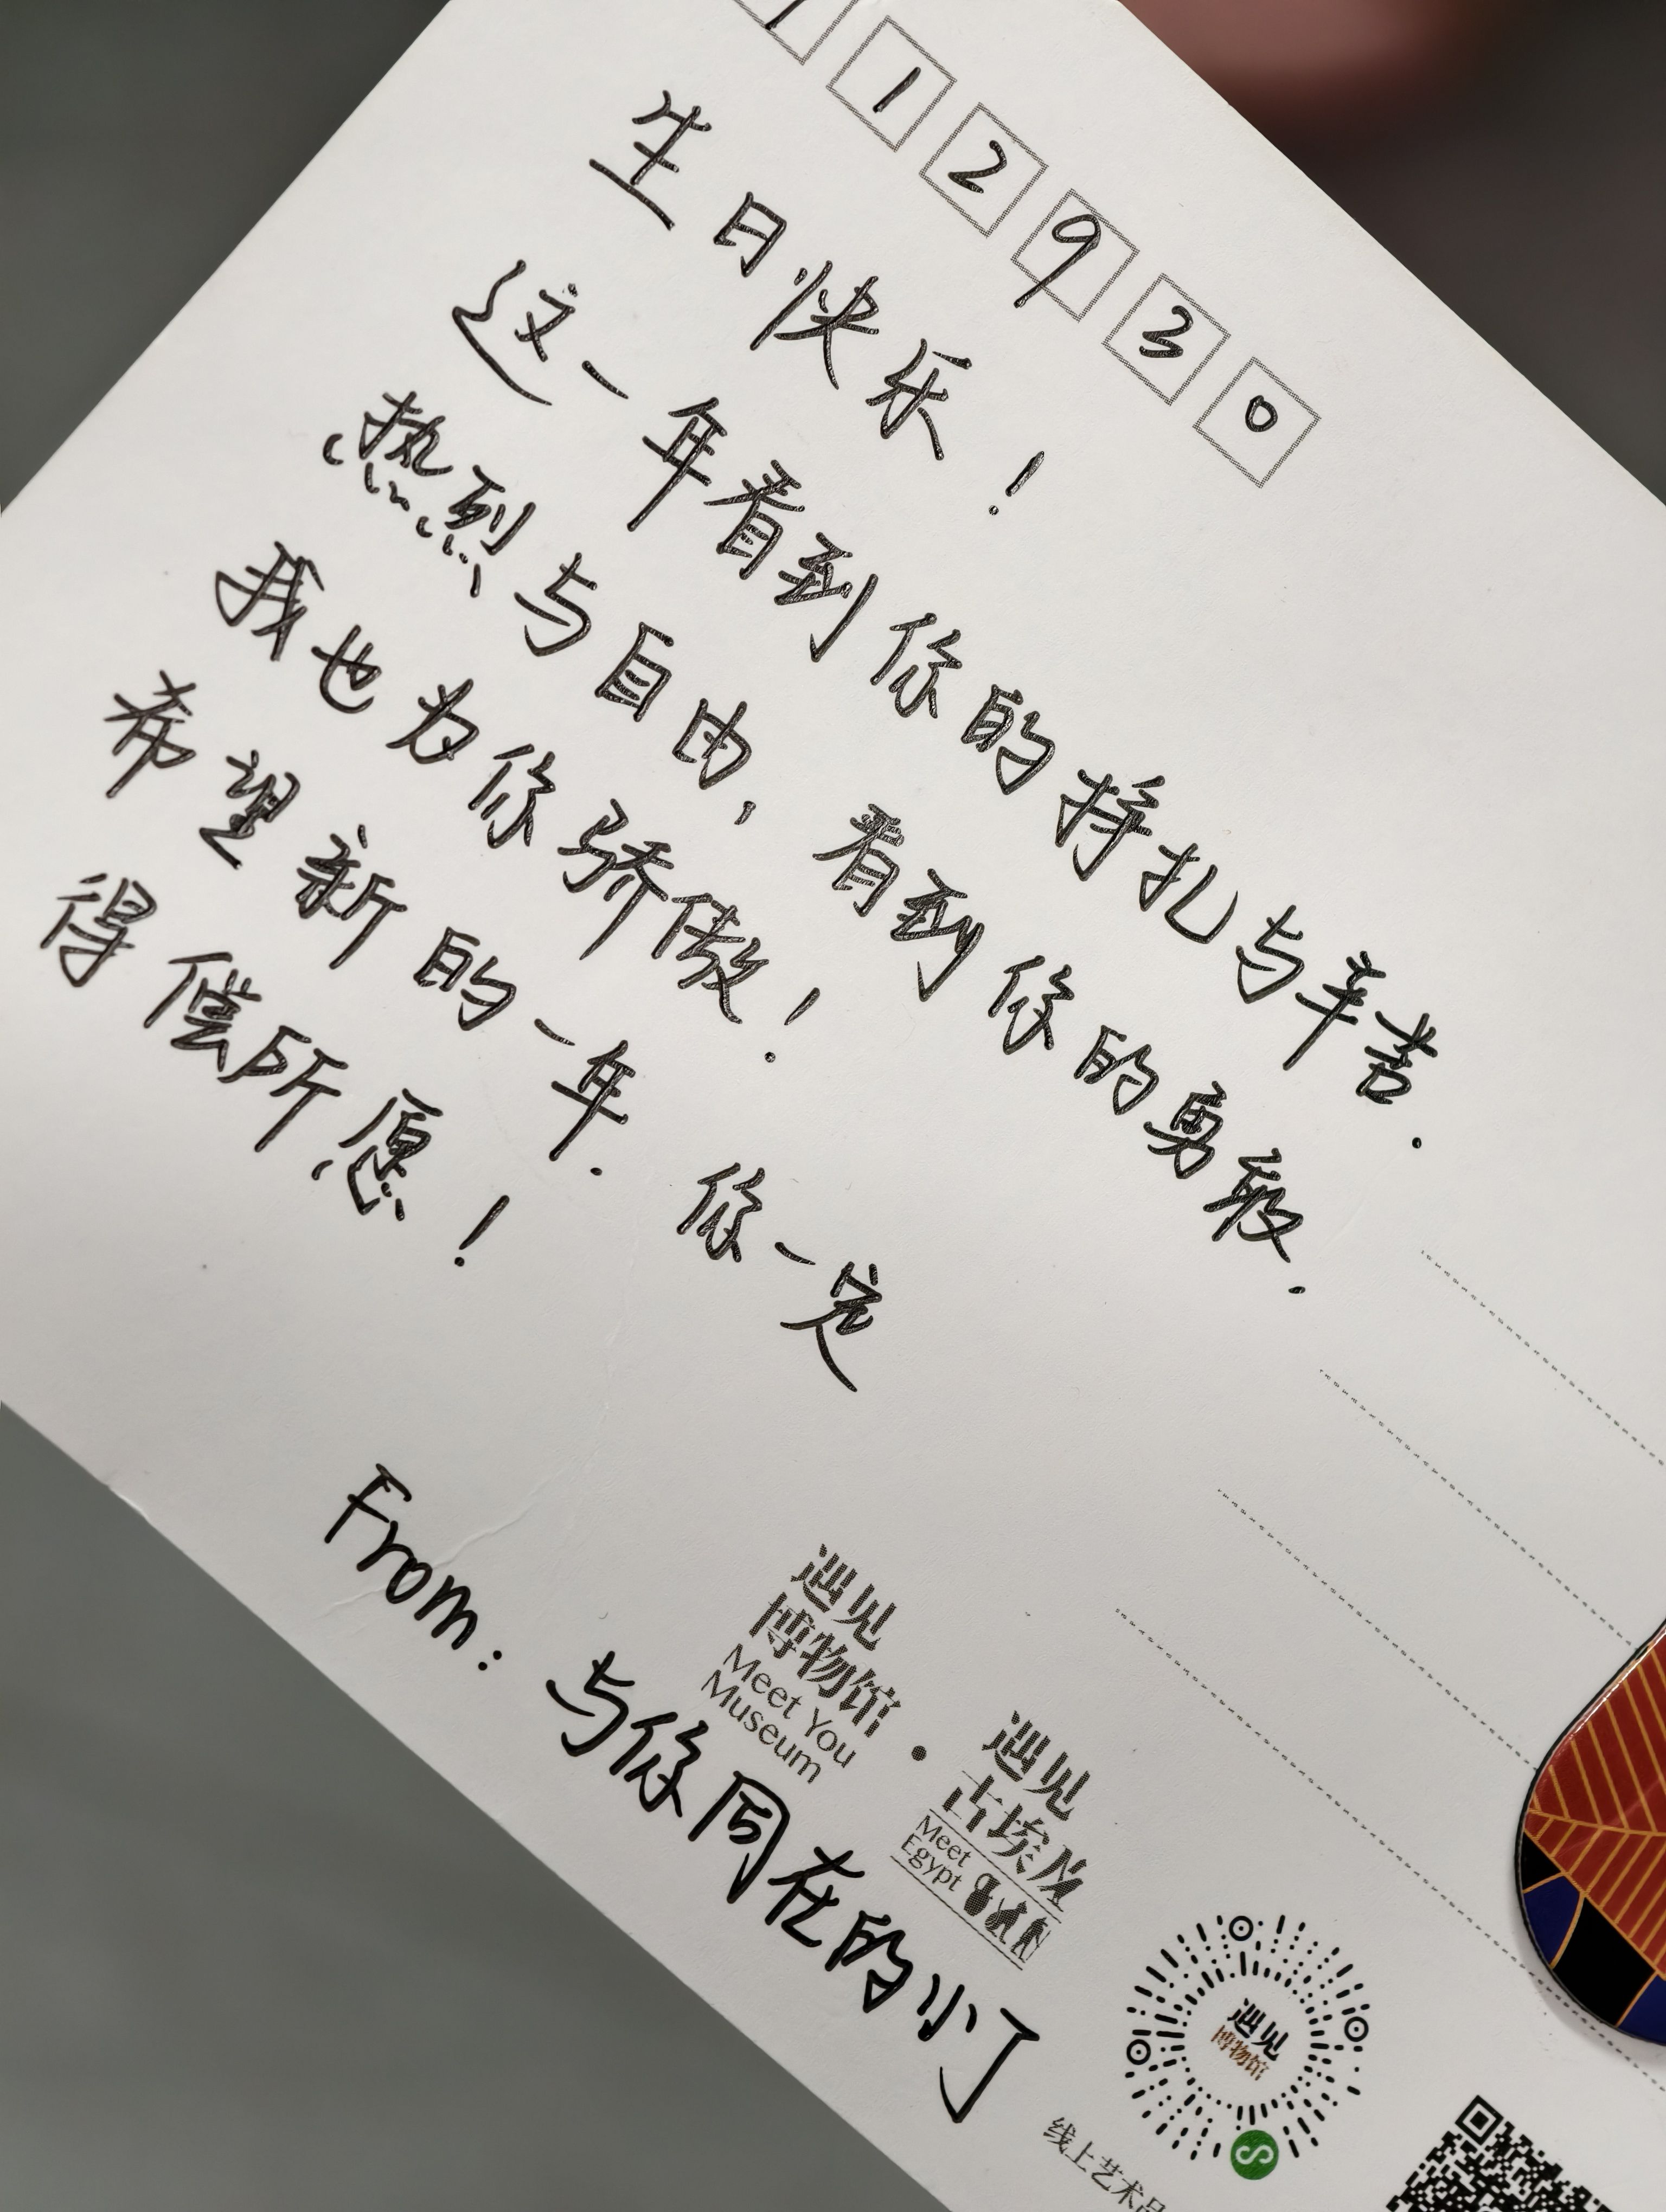 112930
生日快乐！
这一年看到你的挣扎与辛苦.
热烈与自由, 看到你的勇敢.
我也为你骄傲！
希望新的一年. 你一定
得偿所愿！
From: 与你同在的小丁
遇见
博物馆
Meet You
Museum
遇见
古埃及
Meet
Egypt
遇见
博物馆
线上艺术品